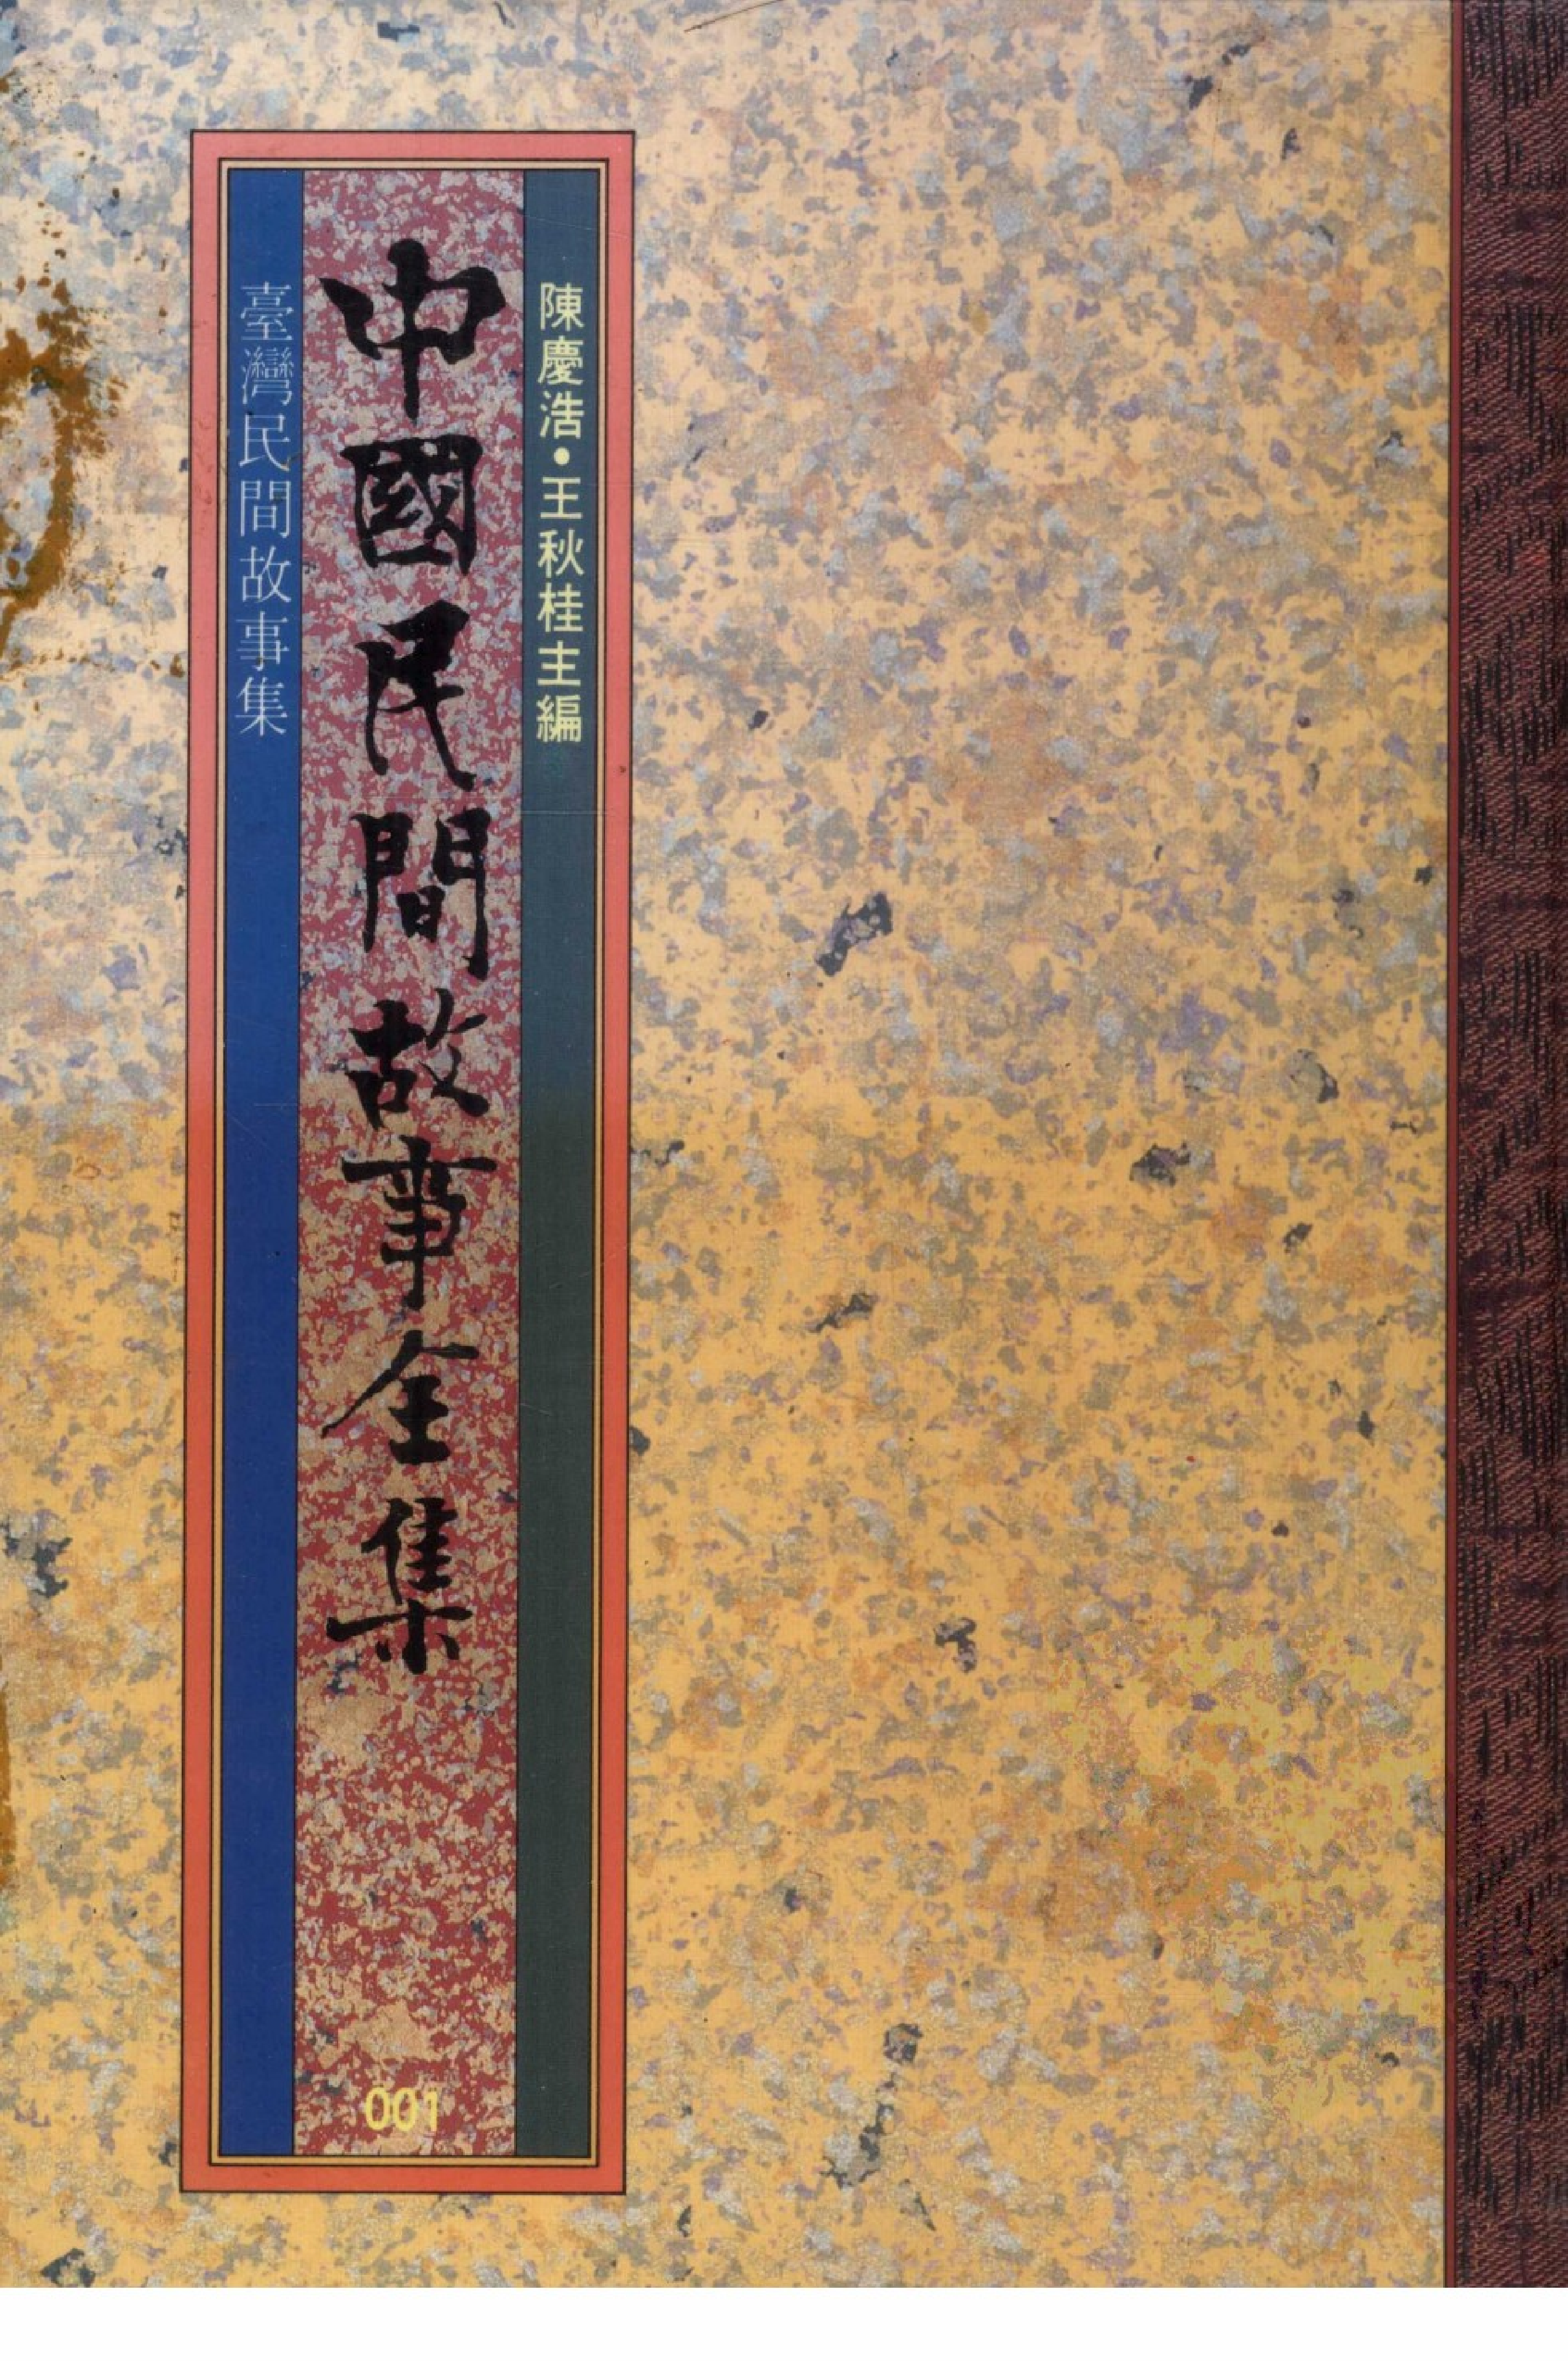 陳慶浩•王秋桂主編
中國民間故事全集
001
臺灣民間故事集